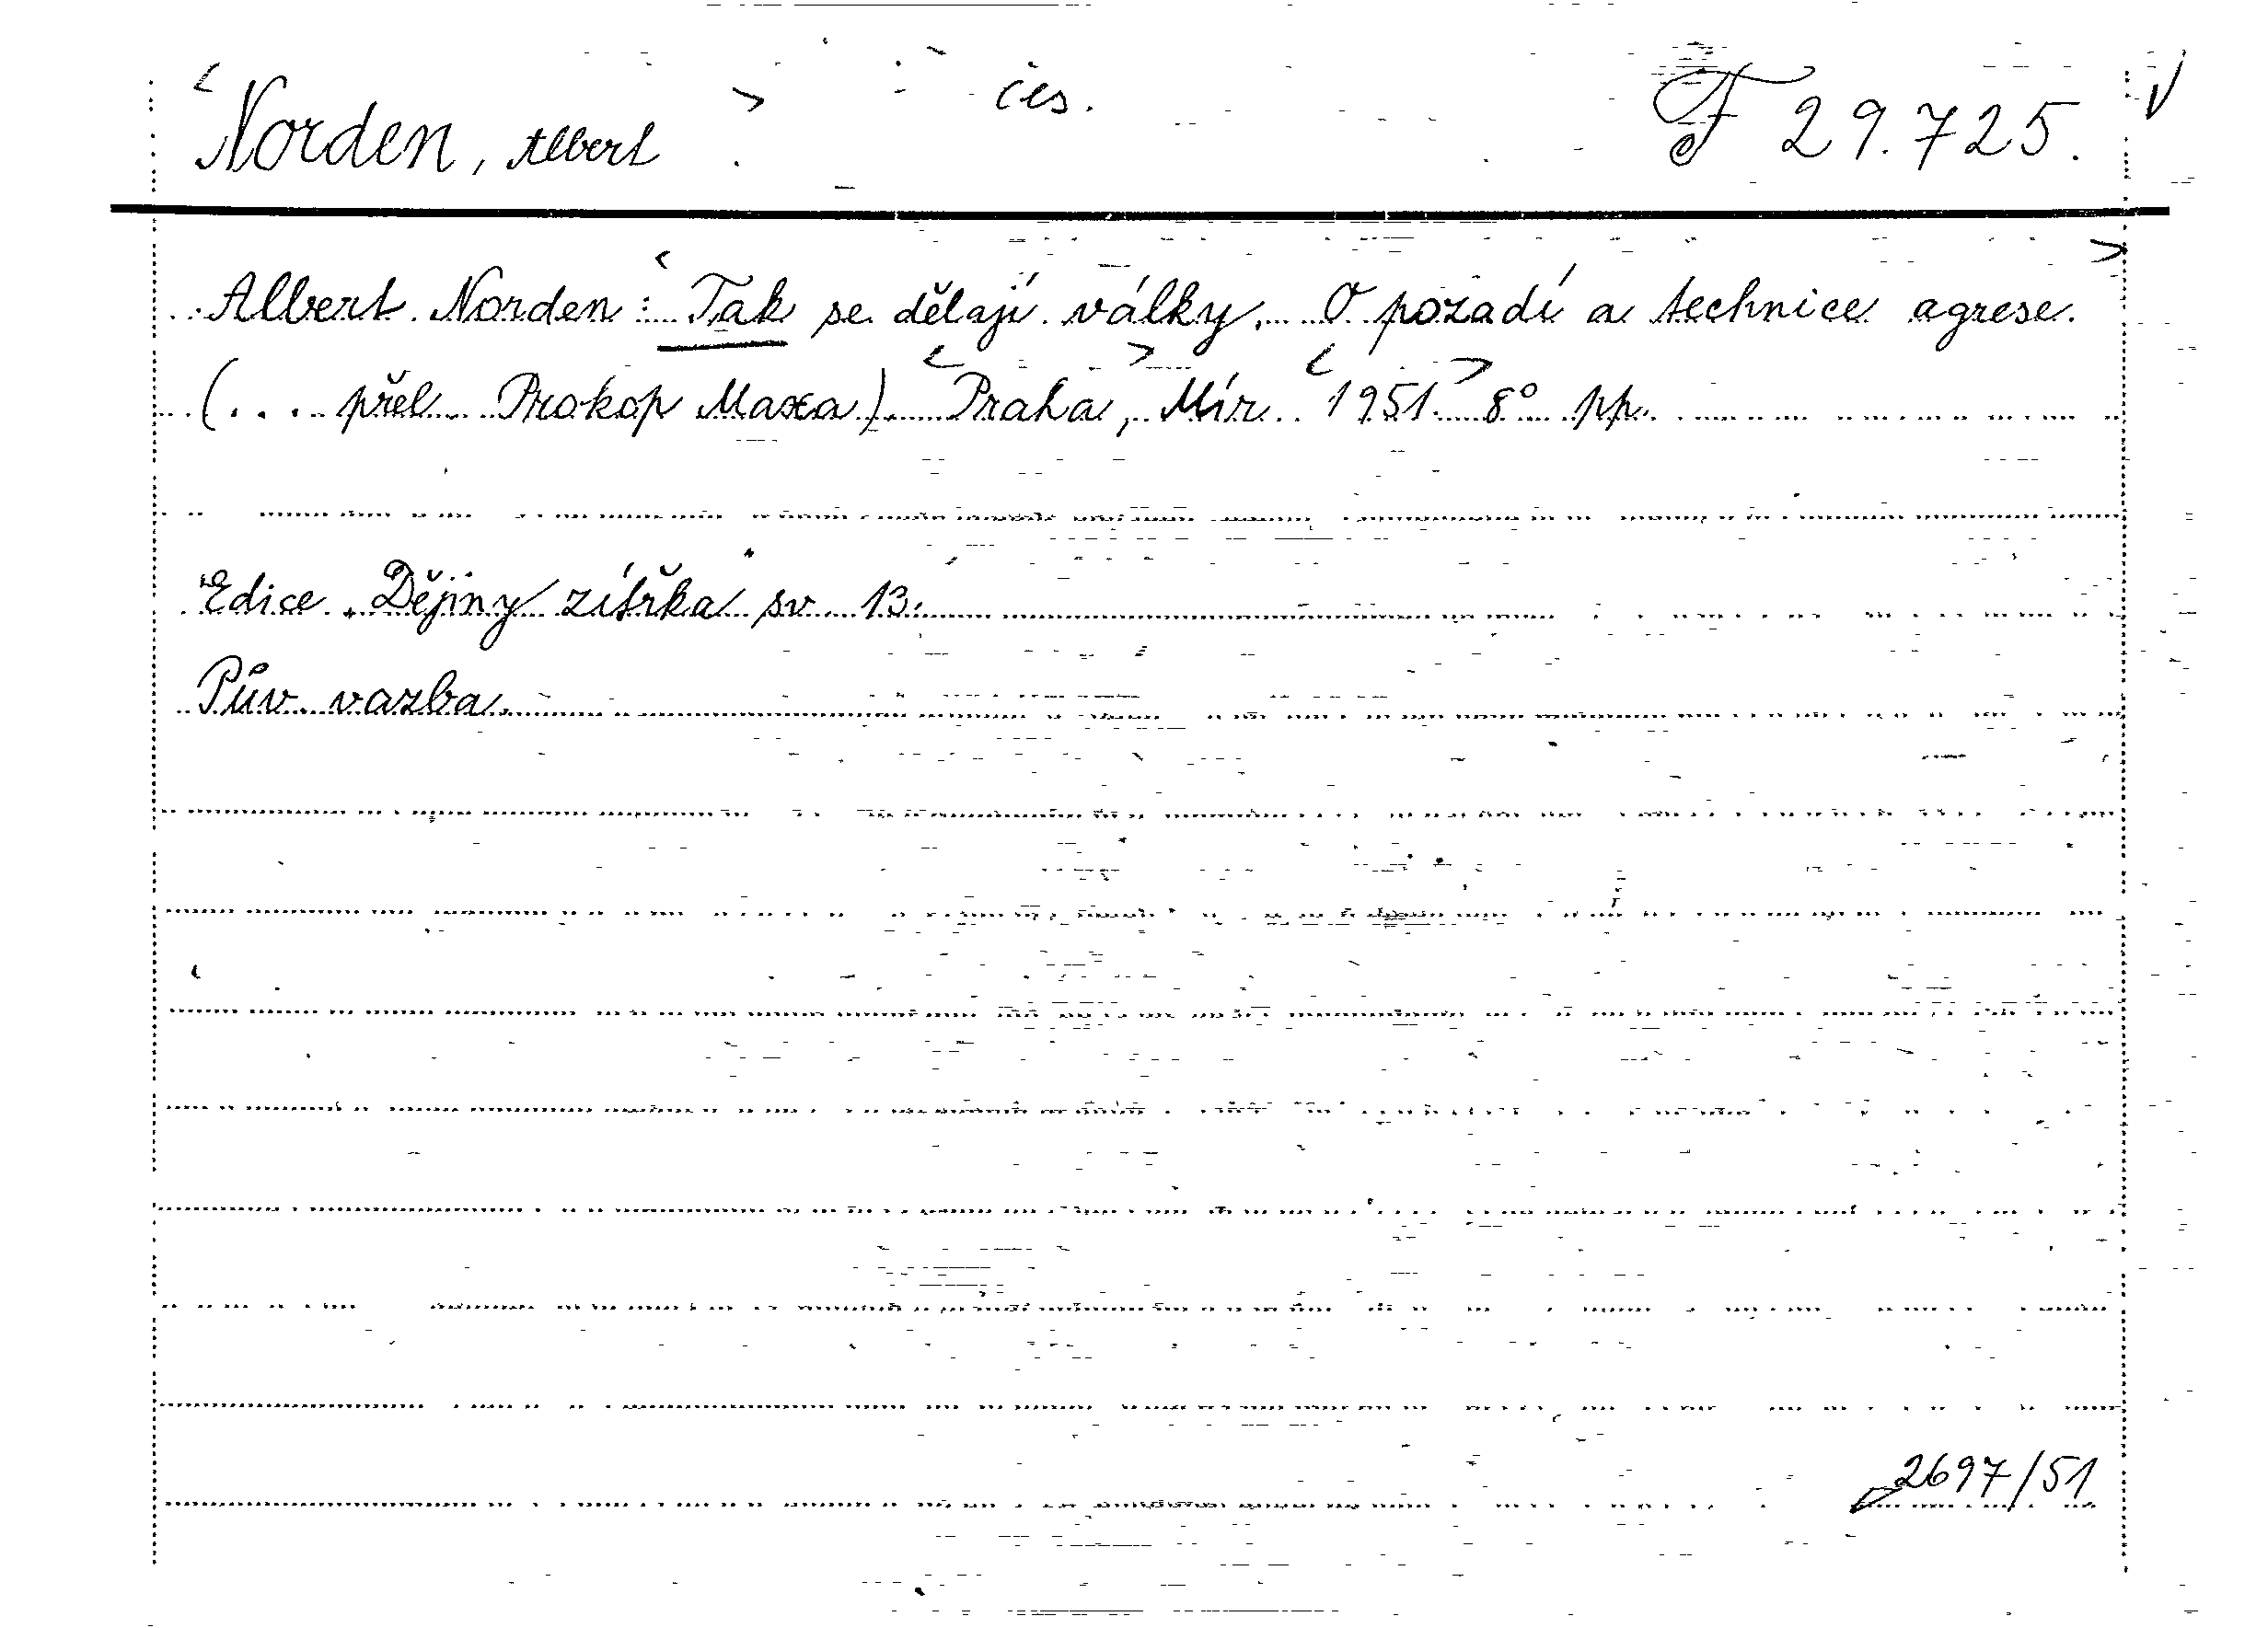 <Norden, Albert> čes. F 29.725. V
Albert Norden: <Tak se dělají války. O pozadí a technice agrese.>
(... přel. Prokop Maxa). <Praha,> Mír <1951> 8° pp.
Edice "Dějiny zítřka" sv. 13.
Pův. vazba.
2697/51